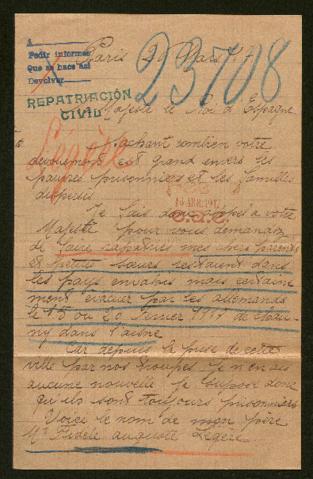 A
Pedir informes
Que se hace así
Devolver
REPATRIACIÓN
CIVIL
23708
Paris 29 Mars
Majesté le Roi d'Espagne
Sachant combien votre
devouement est grand envers les
pauvres prisonniers et les familles
10 ABR. 1917
Je fais donc à votre
Majesté pour vous demander
de faire rapatrier mes chers parents
et petites sœurs restaient dans
les pays envahis mais certaine
ment évacuer par les allemands
le 15 ou 20 fevrier 1917 de chau
ny dans l'aisne
Car depuis la prise de cette
ville par nos troupes je n'en ais
aucune nouvelle je suppose donc
qu'ils sont toujours prisonniers
Voici le nom de mon père
Mr Fidèle auguste Légère
Légère